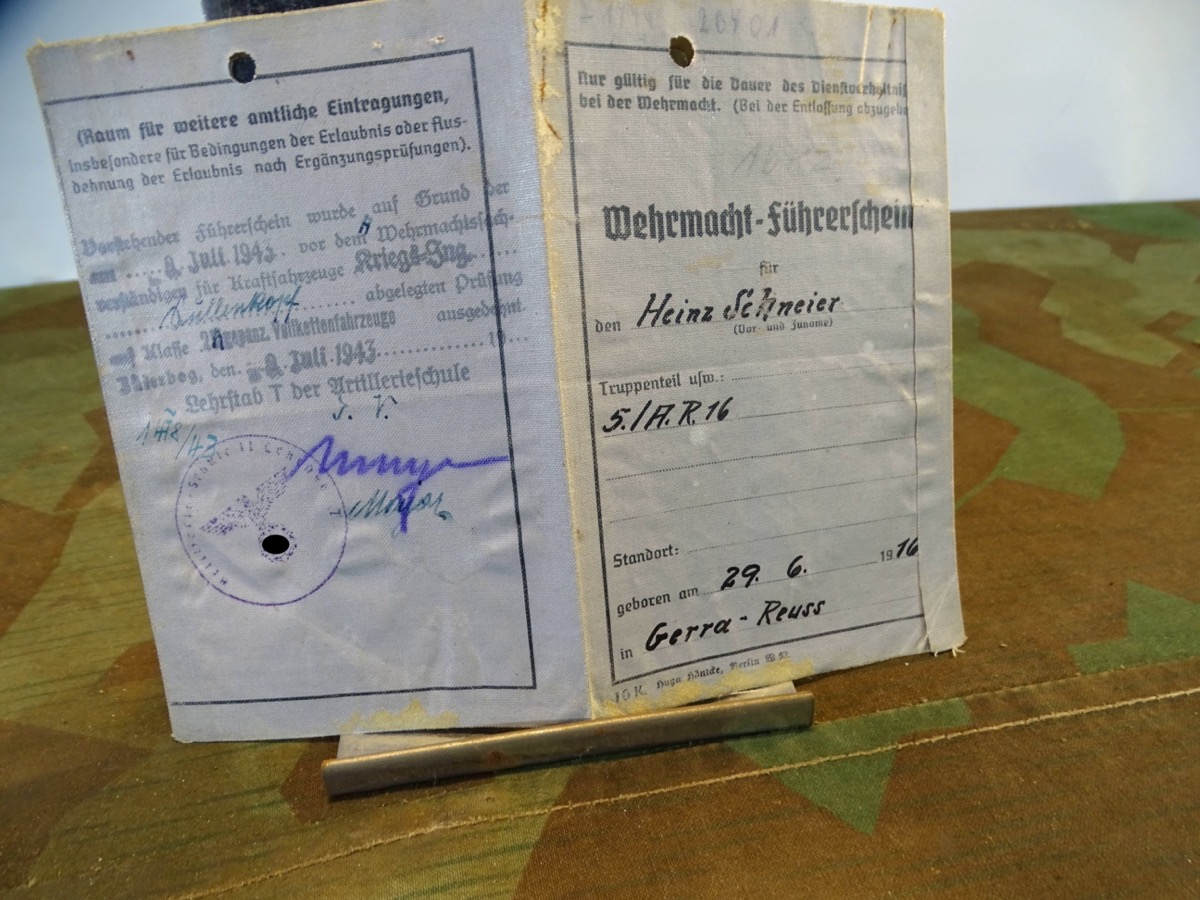 (Raum für weitere amtliche Eintragungen,
insbesondere für Bedingungen der Erlaubnis oder Aus-
dehnung der Erlaubnis nach Ergänzungsprüfungen).
Vorstehender Führerschein wurde auf Grund der
am 8. Juli 1943 vor dem Wehrmachtssach-
verständigen für Kraftfahrzeuge Kriegs-Ing.
abgelegten Prüfung
auf Klasse Vollkettenfahrzeuge ausgedehnt.
Jüterbog, den 8. Juli 1943 19
Lehrstab T der Artillerieschule
J. V.
Major
Nur gültig für die Dauer des Dienstverhältnis
bei der Wehrmacht. (Bei der Entlassung abzugebe
Wehrmacht-Führerschein
für
den Heinz Schneier
(Vor- und Zuname)
Truppenteil usw.:
5./A.R.16
Standort:
geboren am 29. 6. 1916
in Gerra-Reuss
10 K. Hugo Berlin